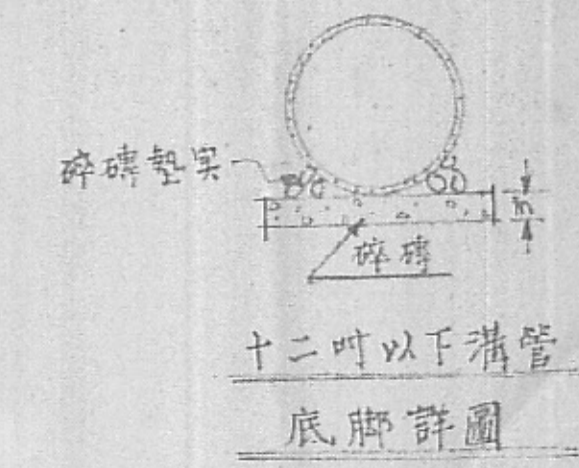 碎磚墊实
碎磚
十二吋以下溝管
底脚詳圖